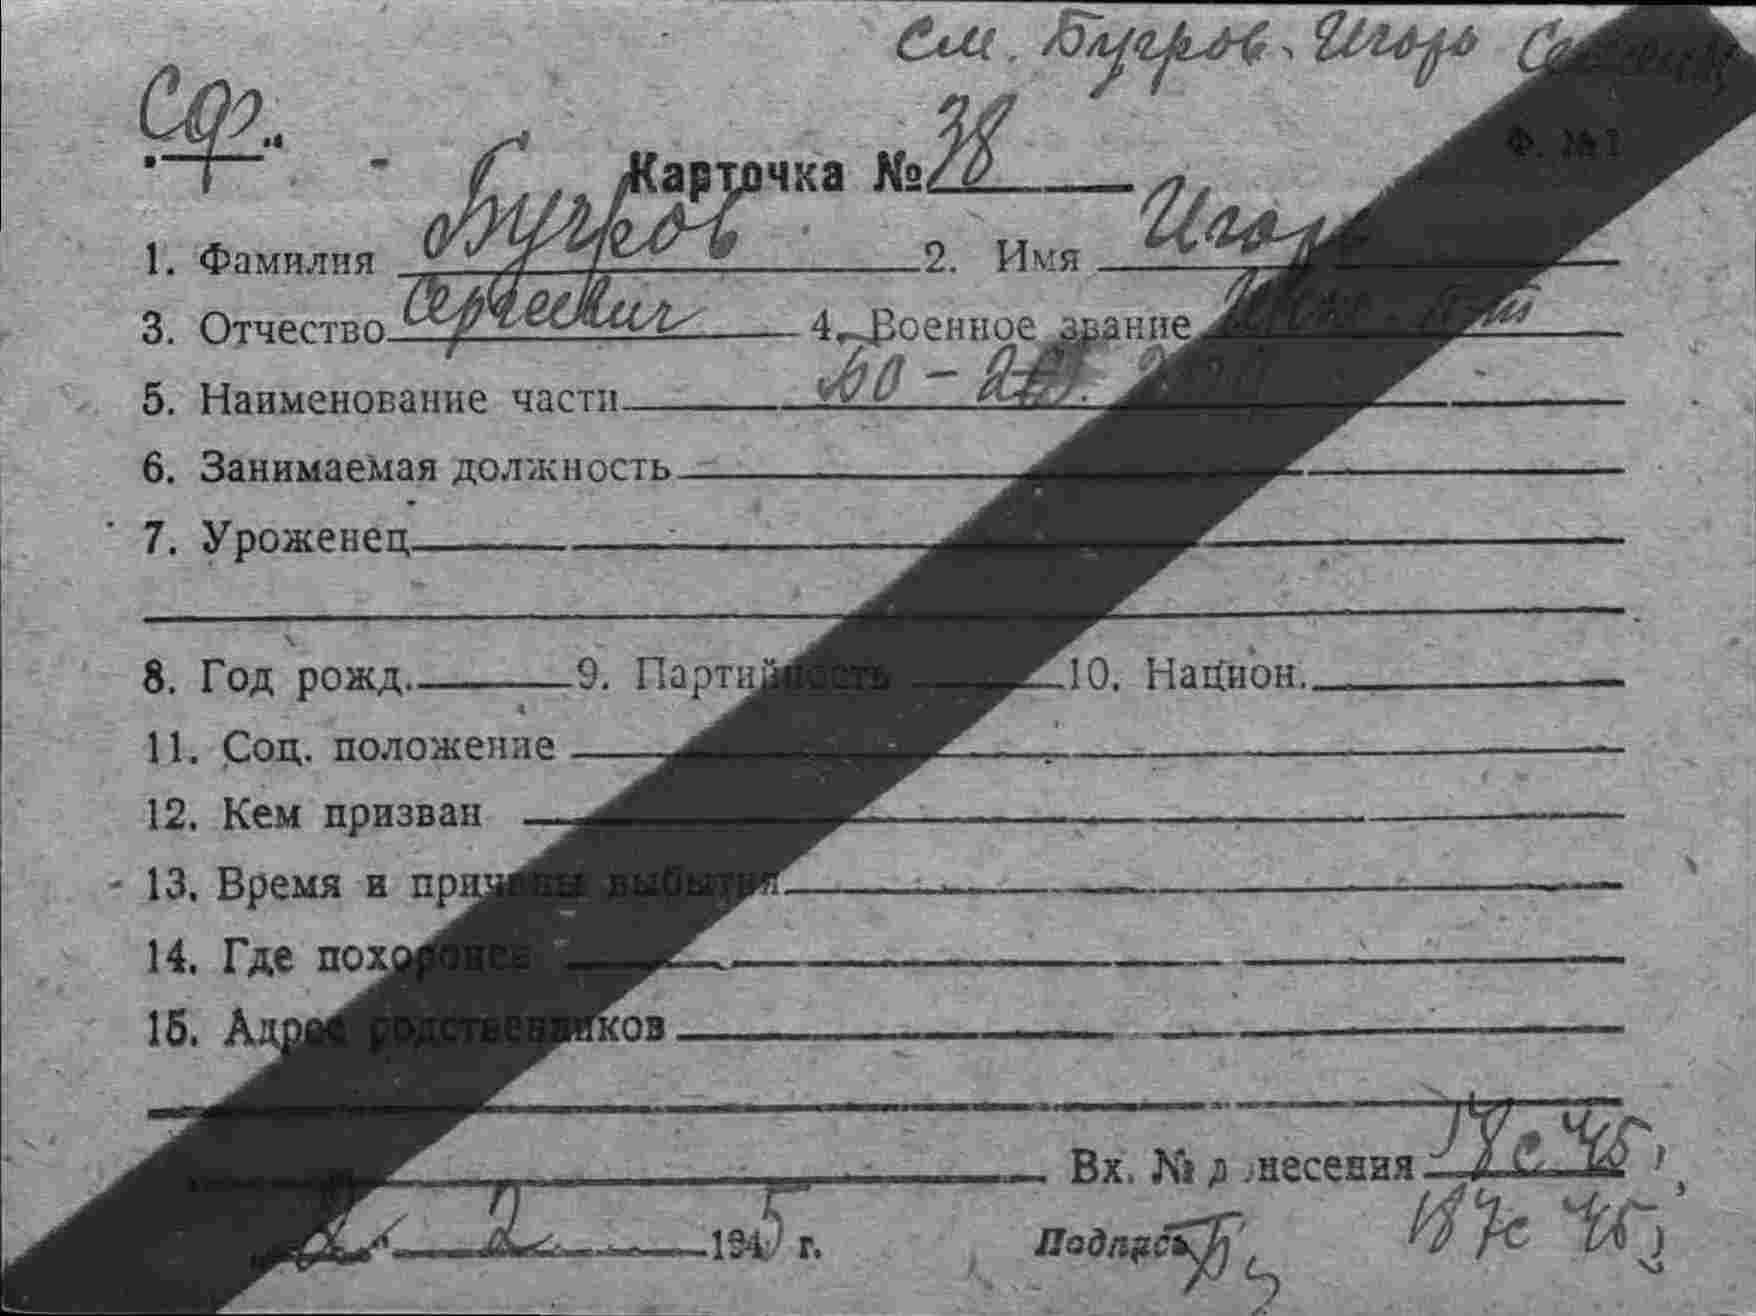 см. Бугров Игорь
Сф.
Ф. №1
Карточка № 38
1. Фамилия Бугров 2. Имя Игорь
3. Отчество Сергеевич 4. Военное звание
5. Наименование части
6. Занимаемая должность
7. Уроженец
8. Год рожд. 9. Партийность 10. Национ.
11. Соц. положение
12. Кем призван
13. Время и причины выбытия
14. Где похоронен
15. Адрес родственников
Вх. № д несения 17с 45
187с 45
2 1945 г. Подпись